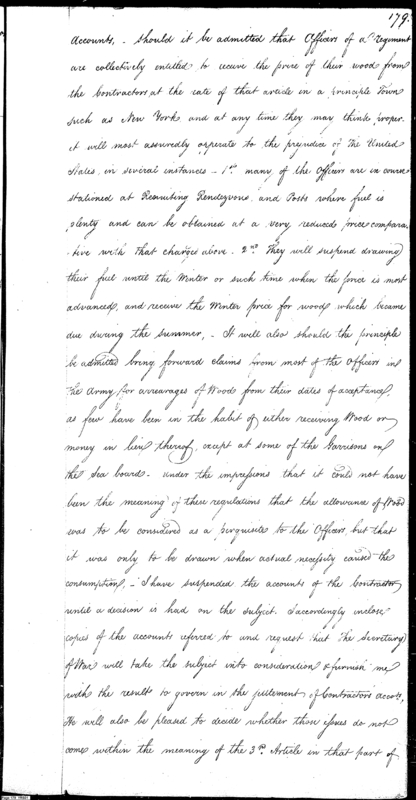 179.
Accounts, - should it be admitted that Officers of a Regiment
are collectively entitled to receive the price of their wood from
the Contractors, at the rate of that article in a principle Town
such as New York and at any time they may think proper.
it will most assuredly opperate to the prejudice of The United
States, in several instances - 1st. many of the Officers are in course
stationed at Recruiting Rendezvous, and Posts where fuel is
plenty and can be obtained at a very reduced price compara-
-tive with that charged above. 2nd. They will suspend drawing
their fuel until the Winter or such time when the price is most
advanced, and receive the Winter price for wood which became
due during the summer, - It will also should the principle
be admitted bring forward claims from most of the Officers in
the Army for arrearages of Wood from their dates of acceptance,
as few have been in the habit of either receiving Wood or
money in lieu thereof, except at some of the Garrisons on
the Sea board - under the impressions that it could not have
been the meaning of these regulations that the allowance of Wood
was to be considered as a perquisite to the Officers, but that
it was only to be drawn when actual necessity caused the
consumption, - I have suspended the accounts of the Contractor
until a decision is had on the subject. I accordingly inclose
copies of the accounts referred to and request that The Secretary
of War will take the subject into consideration & furnish me
with the results to govern in the settlement of Contractors accots.
He will also be pleased to decide whether those issues do not
come within the meaning of the 3rd. Article in that part of